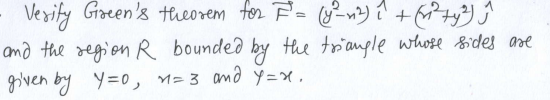 · Verify Green's theorem for F⃗ = (y²-x²) î + (x²+y²) ĵ
and the region R bounded by the triangle whose sides are
given by y=0, x=3 and y=x.